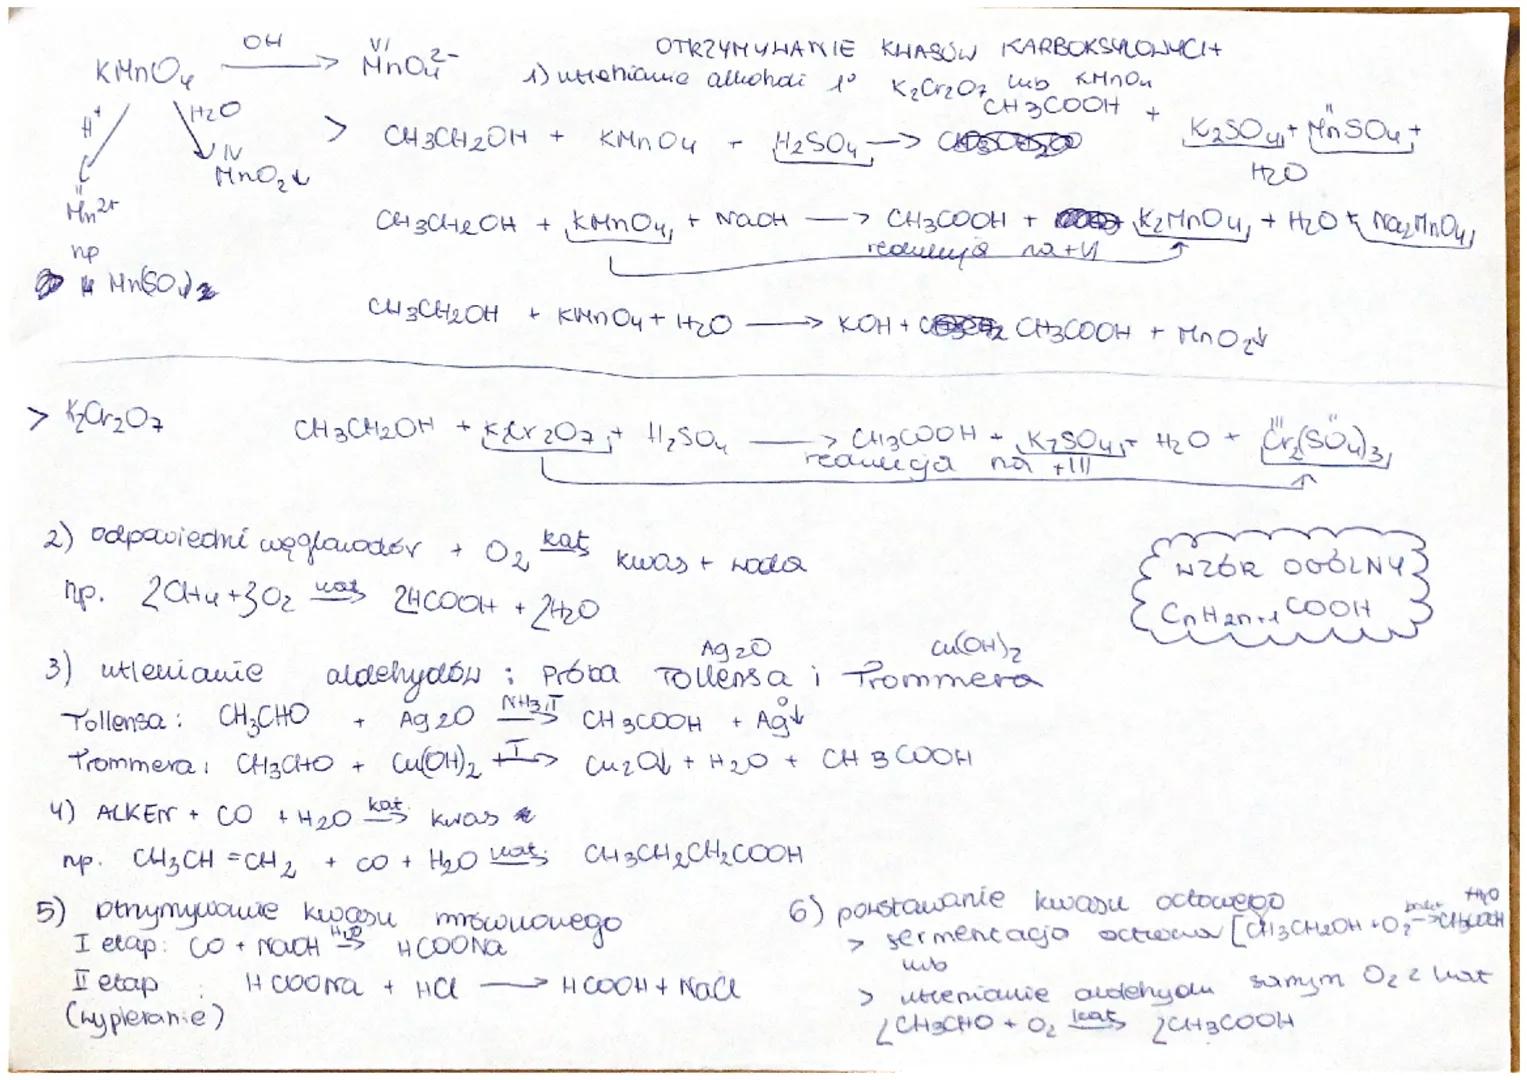 OTRZYMYWANIE KWASÓW KARBOKSYLOWYCH
KMnO4 OH → VI MnO4 2-
1) utlenianie alkoholi 1° K2Cr2O7 lub KMnO4
H+ H2O
IV MnO2↓
II Mn2+
np
Mn(SO4)2
> CH3CH2OH + KMnO4 + H2SO4 → CH3COOH + K2SO4 + II MnSO4 + H2O
CH3CH2OH + KMnO4 + NaOH → CH3COOH + K2MnO4 + H2O + Na2MnO4
redukcja na +VI
CH3CH2OH + KMnO4 + H2O → KOH + CH3COOH + MnO2↓
> K2Cr2O7 CH3CH2OH + K2Cr2O7 + H2SO4 → CH3COOH + K2SO4 + H2O + III II Cr2(SO4)3
redukcja na +III
2) odpowiedni węglowodór + O2 kat → kwas + woda
np. 2CH4 + 3O2 kat → 2HCOOH + 2H2O
WZÓR OGÓLNY
CnH2n+1COOH
Ag2O Cu(OH)2
3) utlenianie aldehydów : próba Tollensa i Trommera
Tollensa : CH3CHO + Ag2O NH3,T → CH3COOH + Ag0↓
Trommera : CH3CHO + Cu(OH)2 T → Cu2O↓ + H2O + CH3COOH
4) ALKEN + CO + H2O kat. → kwas
np. CH3CH=CH2 + CO + H2O kat. → CH3CH2CH2COOH
5) otrzymywanie kwasu mrówkowego
I etap: CO + NaOH H2O → HCOONa
II etap : HCOONa + HCl → HCOOH + NaCl
(wypieranie)
6) powstawanie kwasu octowego
> fermentacja octowa [CH3CH2OH + O2 → CH3COOH H2O
lub
> utlenianie aldehydu samym O2 z kat
2CH3CHO + O2 kat → 2CH3COOH